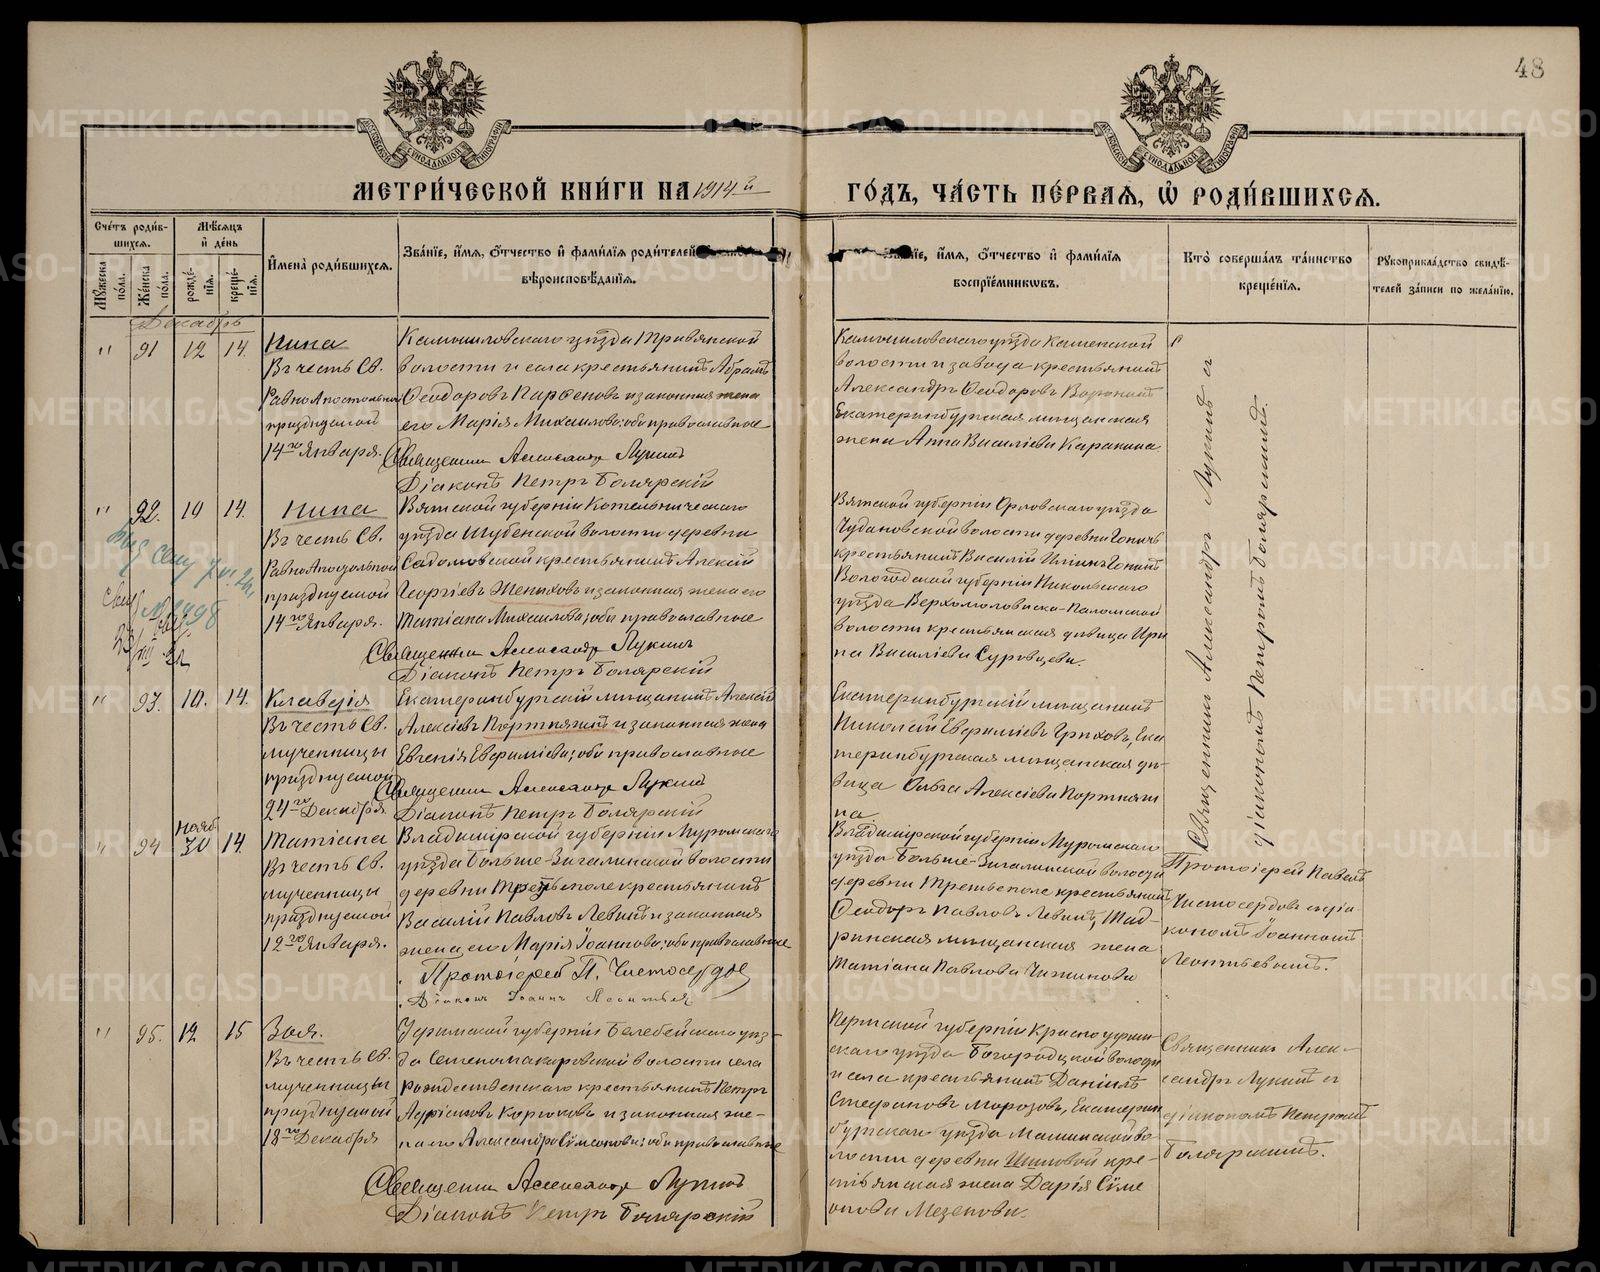 48
МЕТРИ́ЧЕСКОЙ КНИ́ГИ НА 1914й ГО́ДЪ, ЧА́СТЬ ПЕ́РВАЯ, Ѡ҆ РОДИ́ВШИХСЯ.
Сче́тъ роди́в-
шихся.
Мѣ́сяцъ
и҆ де́нь
Мꙋ́жеска по́ла.
Же́нска по́ла.
рожде́нїя.
креще́нїя.
И҆мена̀ роди́вшихся.
Зва́нїе, и҆́мя, ѻ҆́тчество и҆ фами́лїя роди́телей
вѣроисповѣ́данїя.
и҆́мя, ѻ҆́тчество и҆ фами́лїя
воспрїе́мниковъ.
Кто̀ соверша́лъ та́инство
креще́нїя.
Рꙋкоприкла́дство свидѣ́-
телей за́писи по жела́нїю.
Декабрь
" 91 12 14.
Нина
Въ честь Св.
РавноАпостольныя
празднуемой
14го Января.
Камышловскаго уѣзда Травянской
волости и села крестьянинъ Абрамъ
Ѳеодоровъ Парѳеновъ и законная жена
его Марія Михаилова; оба православные
Священникъ Александръ Лукинъ
Діаконъ Петръ Болярскій
Камышловскаго уѣзда Каменской
волости и завода крестьянинъ
Александръ Ѳеодоровъ
Екатеринбургская мѣщанская
жена Анна Василіева Каракина
Священникъ Александръ Лукинъ съ
діакономъ Петромъ Болярскимъ.
" 92. 10 14.
Нина
Въ честь Св.
РавноАпостольной
празднуемой
14го Января.
Вятской губерніи Котельническаго
уѣзда Шубенской волости деревни
Садомовской крестьянинъ Алексій
Георгіевъ Шениховъ и законная жена его
Татіана Михаилова; оба православные
Священникъ Александръ Лукинъ
Діаконъ Петръ Болярскій
Вятской губерніи Орловскаго уѣзда
Чудановской волости деревни
крестьянинъ Василій
Вологодской губерніи Никольскаго
уѣзда
волости крестьянская дѣвица Ири
на Василіева Суровцева.
№ 2498
" 93. 10. 14.
Клавдія
Въ честь Св.
мученницы
празднуемой
24го Декабря.
Екатеринбургскій мѣщанинъ Алексій
Алексіевъ Портнягинъ и законная жена
Евгенія Евфиміева; оба православные
Священникъ Александръ Лукинъ
Діаконъ Петръ Болярскій
Екатеринбургскій мѣщанинъ
Николай Евфиміевъ Грѣховъ, Ека
теринбургская мѣщанская дѣ-
вица Ольга Алексіева Портняги
на
" 94 нояб. 30 14.
Татіана
Въ честь Св.
мученницы
празднуемой
12го Января.
Владимірской губерніи Муромскаго
уѣзда Больше-Зигалинской волости
деревни Третьеполе крестьянинъ
Василій Павловъ Левинъ и законная
жена его Марія Іоаннова; оба православные
Протоіерей П. Чистосердов
Діаконъ Іоаннъ Леонтьевъ
Владимірской губерніи Муромскаго
уѣзда Больше-Зигалинской волости
деревни Третьеполе крестьянинъ
Ѳеодоръ Павловъ Левинъ, Шад-
ринская мѣщанская жена
Татіана Павлова Чижикова
Протоіерей Павелъ
Чистосердовъ съ діа-
кономъ Іоанномъ
Леонтьевымъ.
" 95. 12 15
Зоя.
Въ честь Св.
мученницы
празднуемой
18го Декабря
Уфимской губерніи Белебейскаго уѣз-
да Семеномакаровской волости села
Рождественскаго крестьянинъ Петръ
Корюковъ и законная же-
на его Александра Сѵмеонова; оба православные
Священникъ Александръ Лукинъ
Діаконъ Петръ Болярскій
Пермской губерніи Красноуфим-
скаго уѣзда Богородской волости
и села крестьянинъ Даніилъ
Стефановъ Морозовъ, Екатерин
бургскаго уѣзда Маминской во-
лости деревни Шиловой кре-
стьянская жена Дарія Сѵме
онова Мезенова.
Священникъ Алек-
сандръ Лукинъ съ
діакономъ Петромъ
Болярскимъ.
METRIKI.GASO-URAL.RU